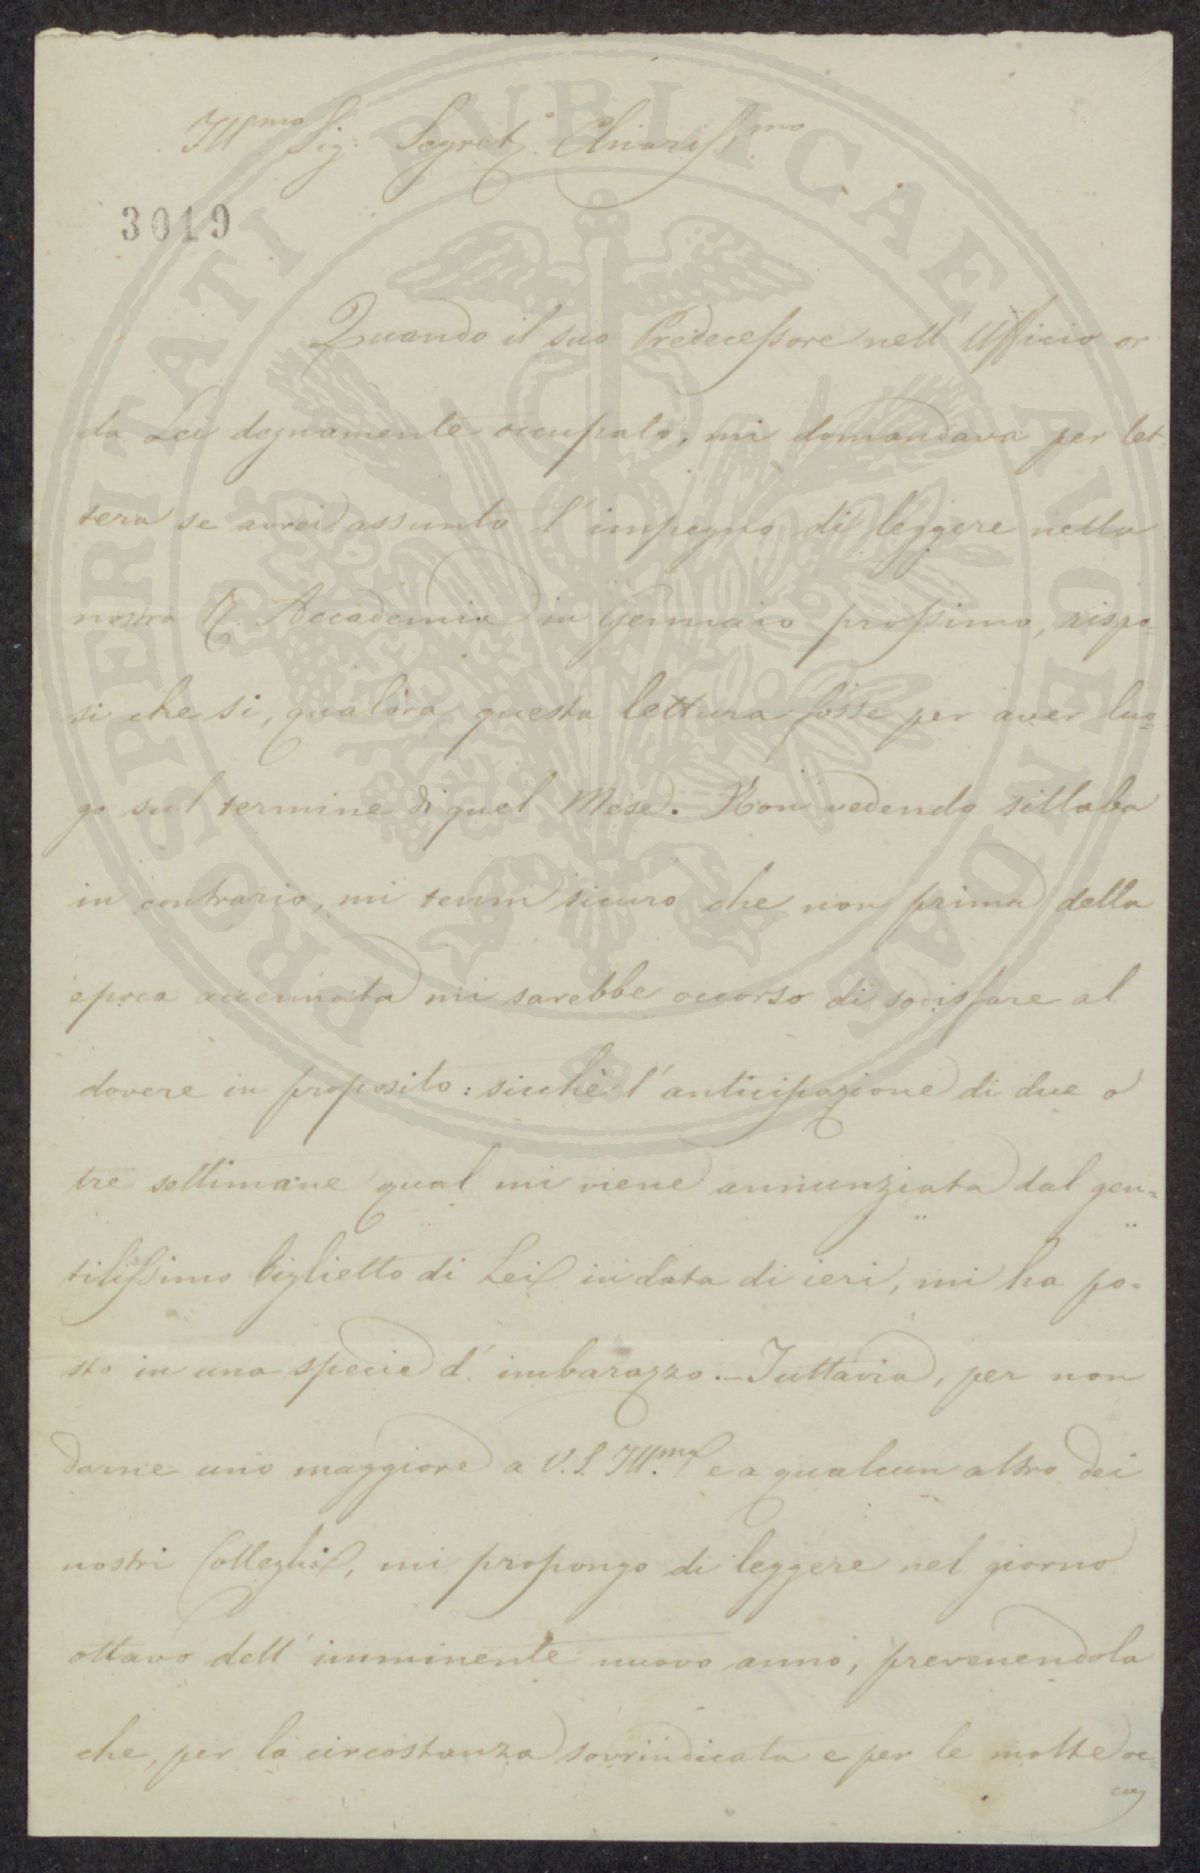 Ill.mo Sig: Segret.o Chiariss.mo
3019
PROSPERITATI PUBLICAE AUGENDAE
Quando il suo Predecessore nell' Ufficio or
da Lei degnamente occupato, mi domandava per let-
tera se avrei assunto l' impegno di leggere nella
nostra R. Accademia in Gennaio prossimo, rispo-
si che si, qualora questa lettura fosse per aver luo-
go sul termine di quel Mese. Non vedendo sillaba
in contrario, mi tenni sicuro che non prima della
epoca accennata mi sarebbe occorso di sodisfare al
dovere in proposito: sicchè l' anticipazione di due o
tre settimane qual mi viene annunziata dal gen=
tilissimo biglietto di Lei in data di ieri, mi ha po=
sto in una specie d' imbarazzo. – Tuttavia, per non
darne uno maggiore a V. S. Ill.ma e a qualcun altro dei
nostri Colleghi, mi propongo di leggere nel giorno
ottavo dell' imminente nuovo anno, prevenendola
che, per la circostanza sovrindicata e per le molte oc=
cu